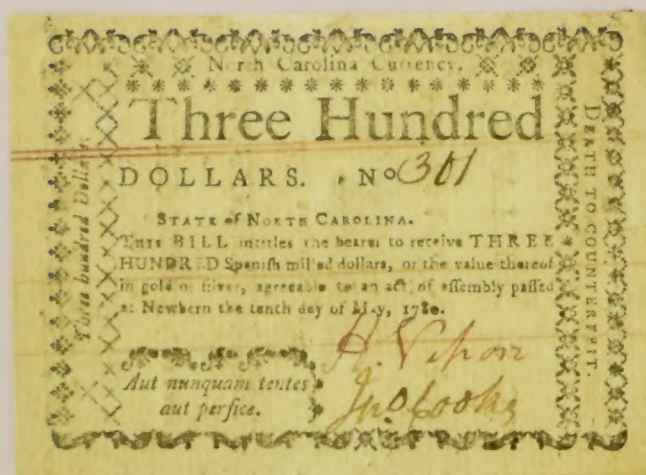 North Carolina Currency.
Three Hundred
DOLLARS. No 301
STATE of NORTH CAROLINA.
THIS BILL intitles the bearer to receive THREE
HUNDRED Spanish milled dollars, or the value thereof
in gold or silver, agreeable to an act of assembly passed
at Newbern the tenth day of May, 1780.
Aut nunquam tentes
aut perfice.
Jno Cooke
Three hundred Dollars.
DEATH TO COUNTERFEIT.